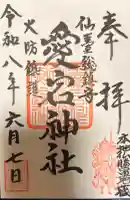 奉拝
仙臺総鎮守
愛宕神社
火防鎮護
令和八年六月七日